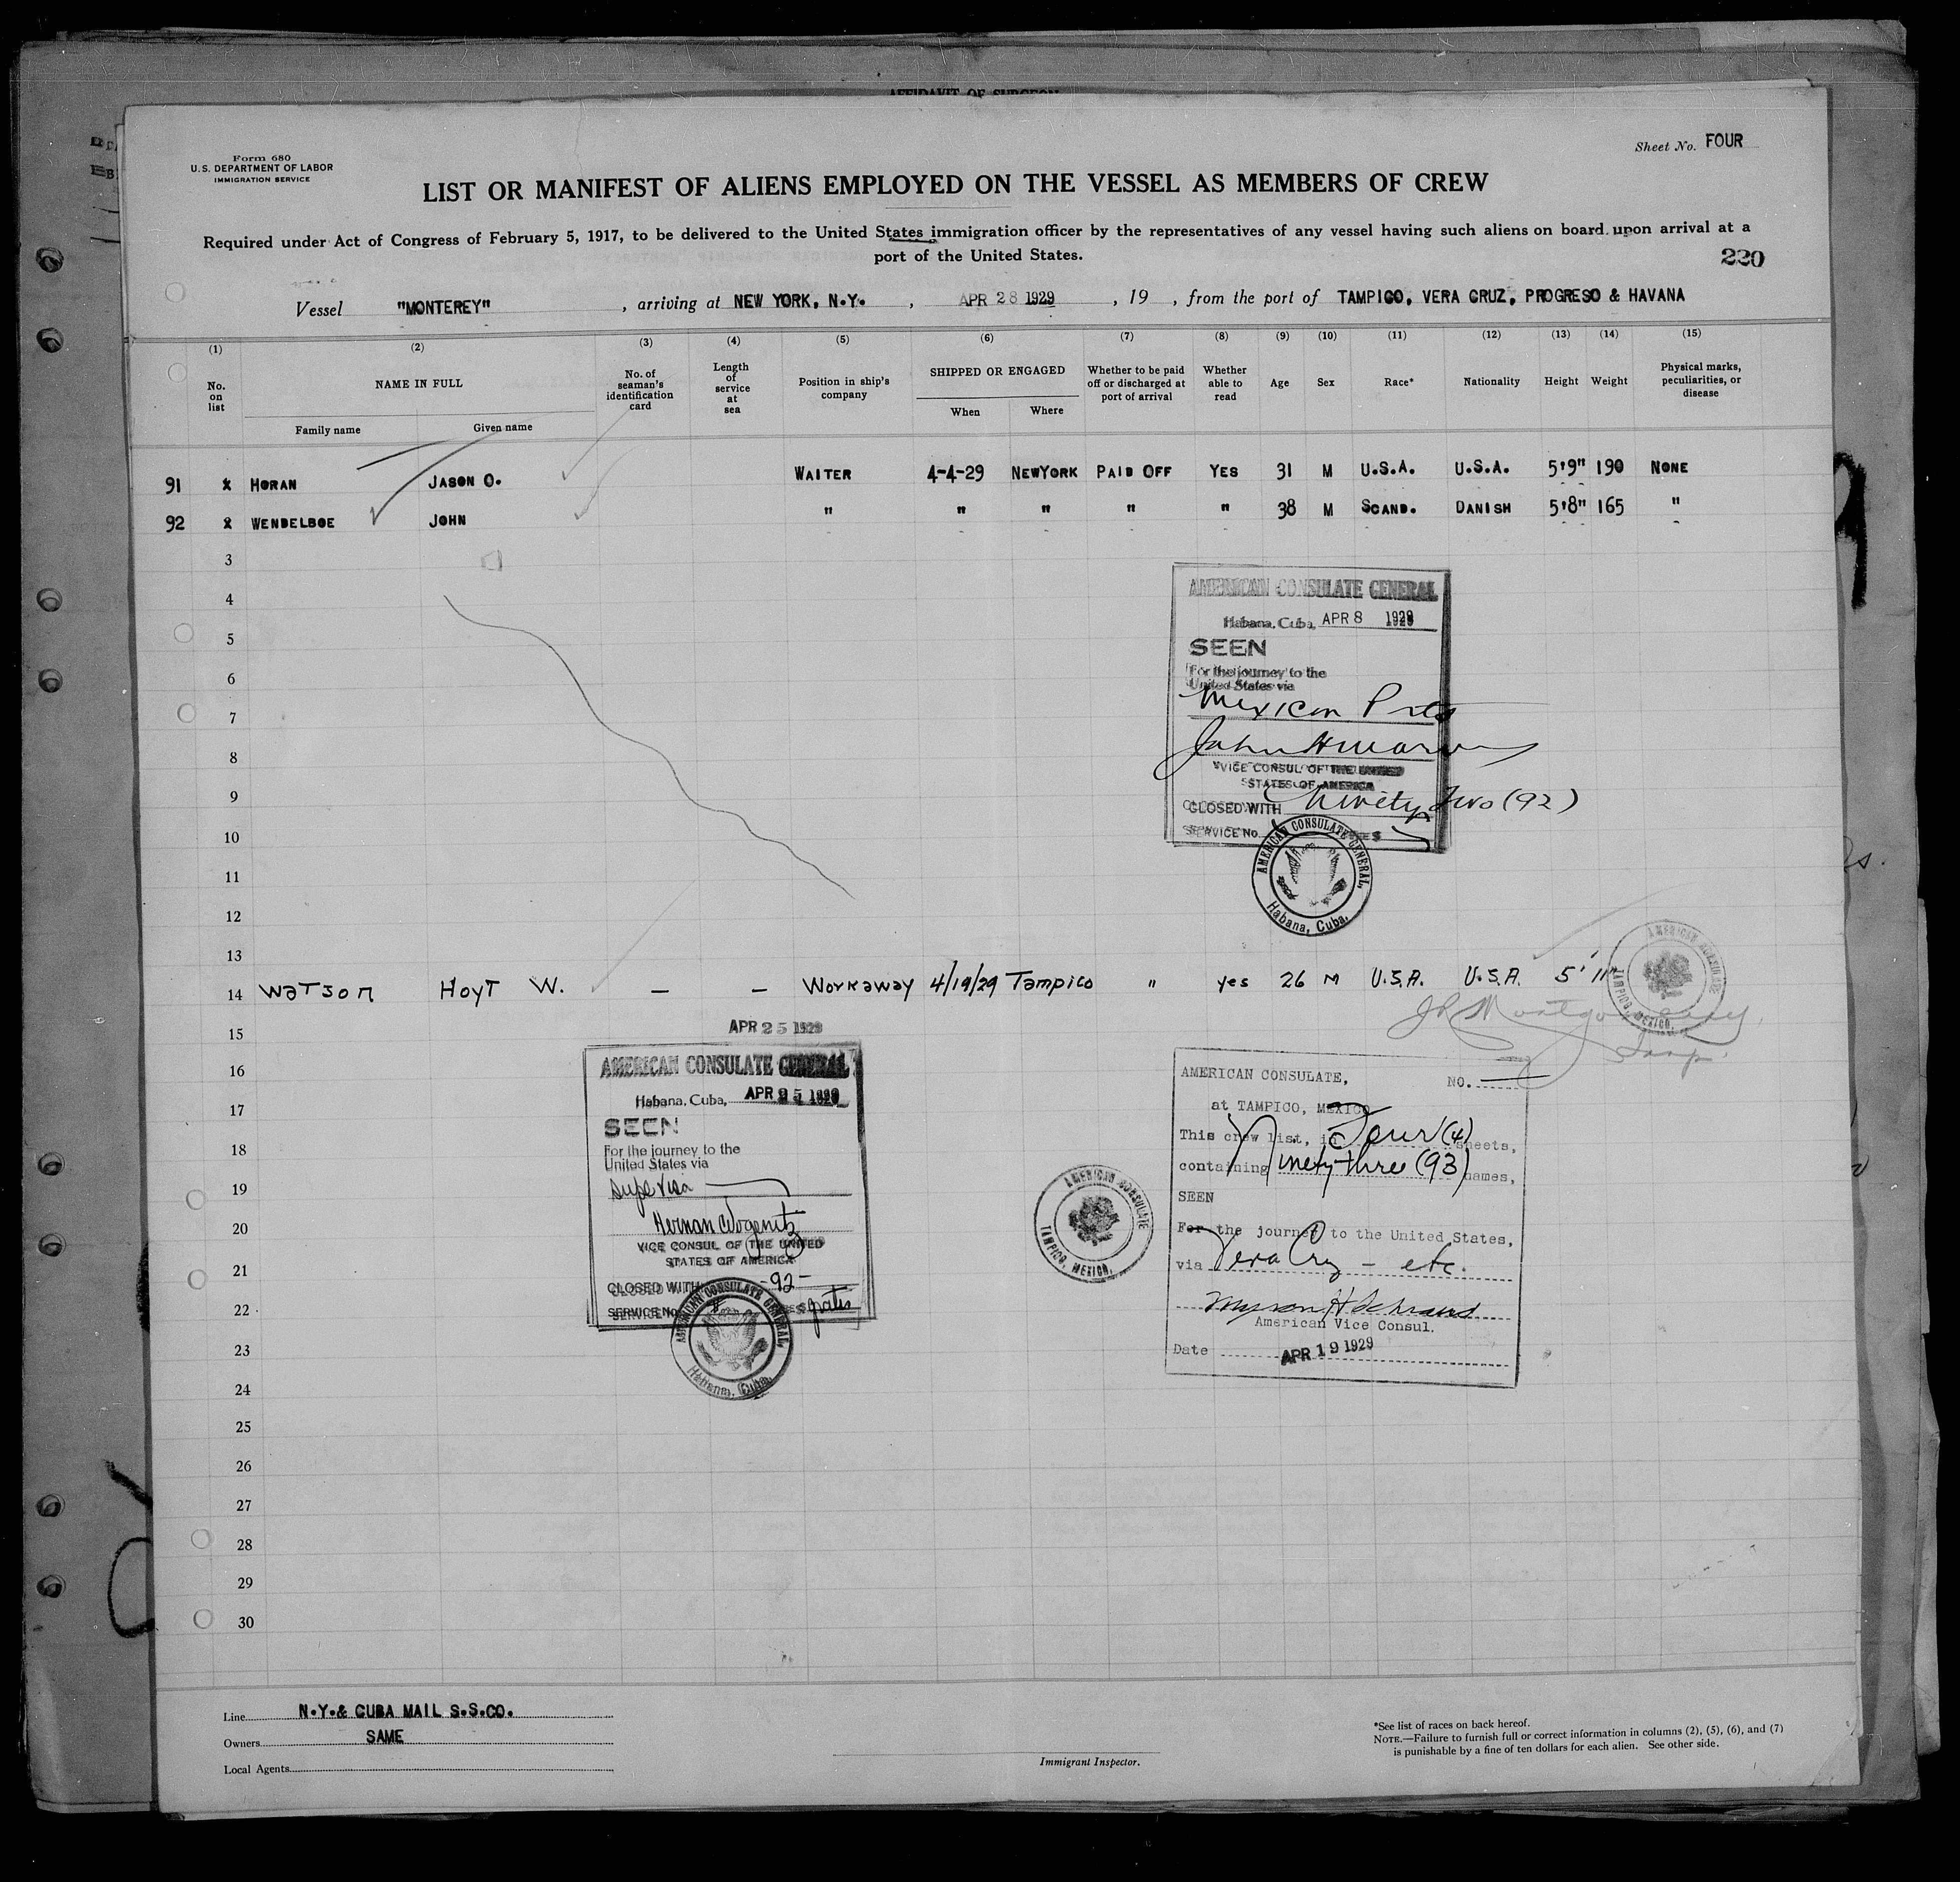 AFFIDAVIT OF SURGEON
Form 680
U.S. DEPARTMENT OF LABOR
IMMIGRATION SERVICE
Sheet No. FOUR
LIST OR MANIFEST OF ALIENS EMPLOYED ON THE VESSEL AS MEMBERS OF CREW
Required under Act of Congress of February 5, 1917, to be delivered to the United States immigration officer by the representatives of any vessel having such aliens on board upon arrival at a
port of the United States.
220
Vessel "MONTEREY", arriving at NEW YORK, N.Y., APR 28 1929, 19 , from the port of TAMPICO, VERA CRUZ, PROGRESO & HAVANA
(1) (2) (3) (4) (5) (6) (7) (8) (9) (10) (11) (12) (13) (14) (15)
No. on list NAME IN FULL No. of seaman's identification card Length of service at sea Position in ship's company SHIPPED OR ENGAGED Whether to be paid off or discharged at port of arrival Whether able to read Age Sex Race* Nationality Height Weight Physical marks, peculiarities, or disease
Family name Given name When Where
91 X HORAN JASON O. WAITER 4-4-29 NEWYORK PAID OFF YES 31 M U.S.A. U.S.A. 5'9" 190 NONE
92 X WENDELBOE JOHN " " " " " 38 M SCAND. DANISH 5'8" 165 "
3
4
5
6
7
8
9
10
11
12
13
AMERICAN CONSULATE GENERAL
Habana, Cuba, APR 8 1929
SEEN
For the journey to the
United States via
Mexican Pts
VICE CONSUL OF THE UNITED
STATES OF AMERICA
CLOSED WITH Ninety Two (92)
SERVICE No.
AMERICAN CONSULATE GENERAL,
Habana, Cuba.
14 Watson Hoyt W. – – Workaway 4/19/29 Tampico " yes 26 M U.S.A. U.S.A. 5' 11"
AMERICAN CONSULATE
TAMPICO, MEXICO.
15
16
17
18
19
20
21
22
23
24
25
26
27
28
29
30
APR 25 1929
AMERICAN CONSULATE GENERAL
Habana, Cuba, APR 25 1929
SEEN
For the journey to the
United States via
Supl Visa
VICE CONSUL OF THE UNITED
STATES OF AMERICA
CLOSED WITH -92-
SERVICE No. gratis
AMERICAN CONSULATE GENERAL,
Habana, Cuba.
AMERICAN CONSULATE
TAMPICO, MEXICO.
AMERICAN CONSULATE, NO.
at TAMPICO, MEXICO
This crew list, in Four (4) sheets,
containing Ninety three (93) names,
SEEN
For the journey to the United States,
via Vera Cruz – etc.
American Vice Consul.
Date APR 19 1929
Line N.Y.& CUBA MAIL S.S.CO.
Owners SAME
Local Agents
Immigrant Inspector.
*See list of races on back hereof.
NOTE.—Failure to furnish full or correct information in columns (2), (5), (6), and (7)
is punishable by a fine of ten dollars for each alien. See other side.